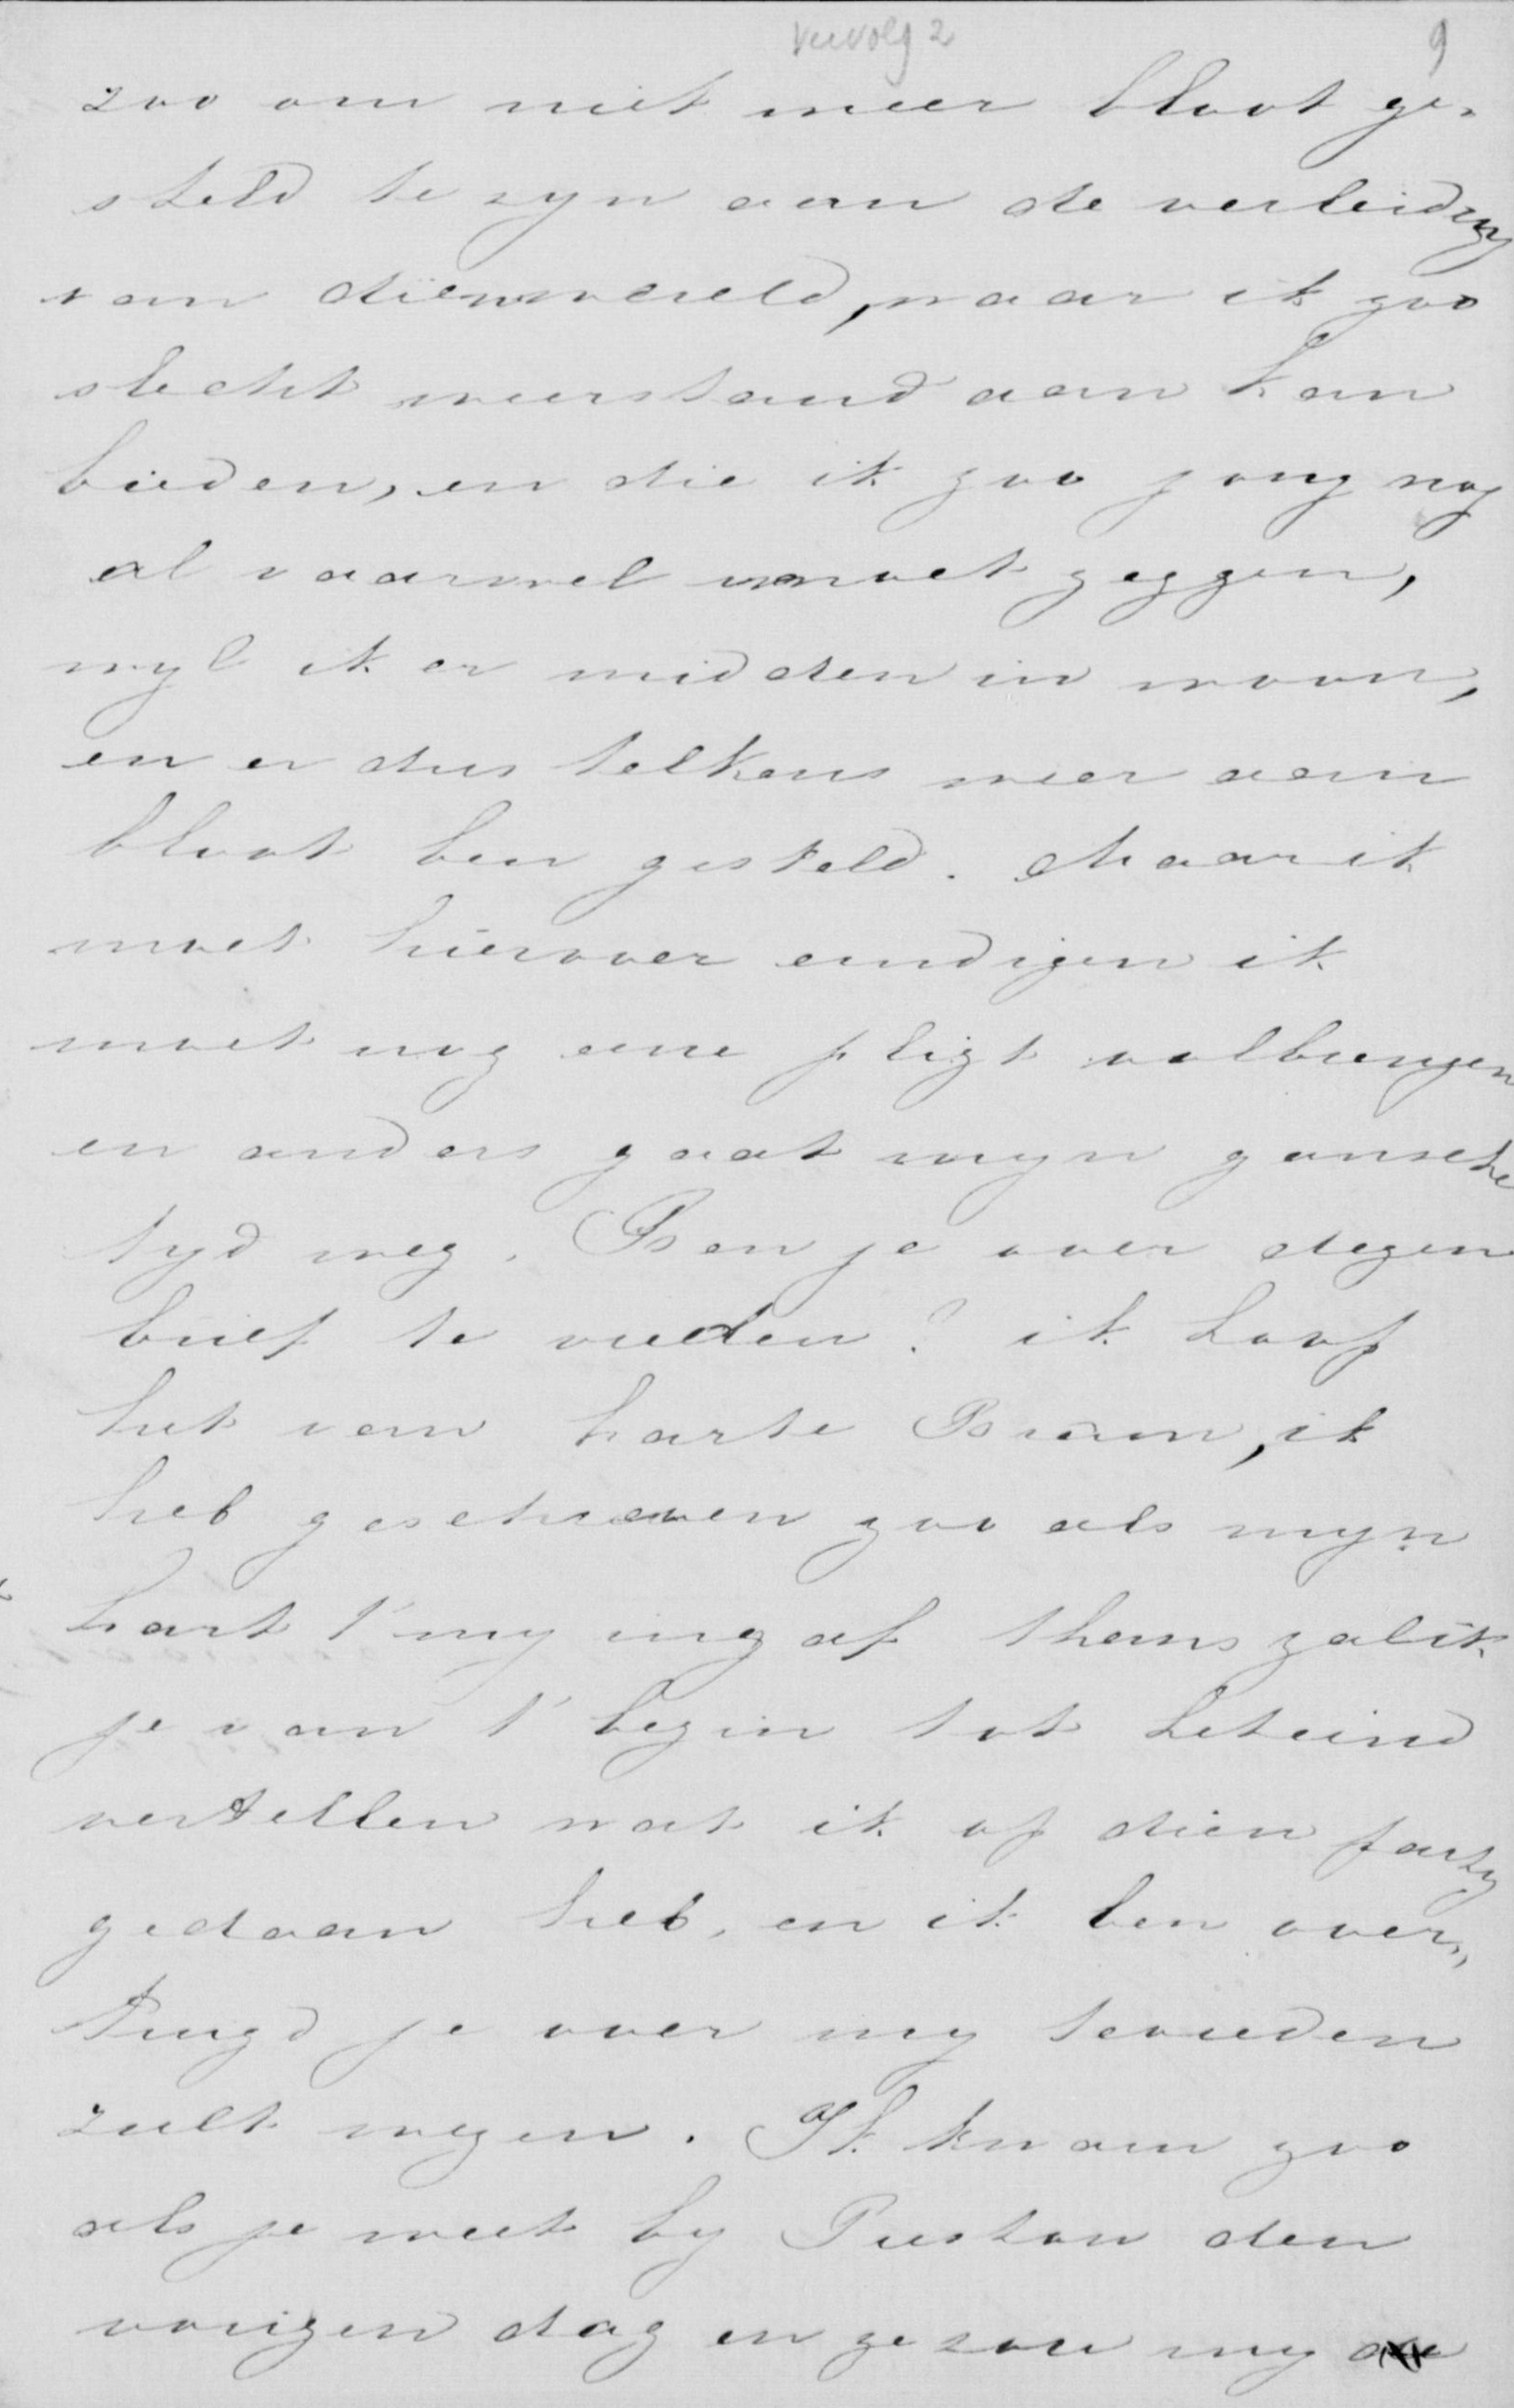 vervolg 2
9
zoo om niet meer bloot ge-
steld te zyn aan de verleiding
van dien wereld, waar ik zoo
slecht weerstand aan kan
bieden, en die ik zoo jong nog
al vaarwel moet zeggen,
wyl ik er midden in woon,
en er dus telkens weer aan
bloot ben gesteld. Maar ik
moet hierover eindigen ik
moet nog eene pligt volbrengen
en anders gaat myn gansche
tyd weg. Ben je over dezen
brief te vreden? ik hoop
het van harte Bram, ik
heb geschreven zoo als myn
hart t' my ingaf thans zal ik
je van t' begin tot het eind
vertellen wat ik op dien party
gedaan heb, en ik ben over,,
tuigd je over my tevreden
zult wezen. Ik kwam zoo
als je weet by Preston den
vorigen dag en ze zou my